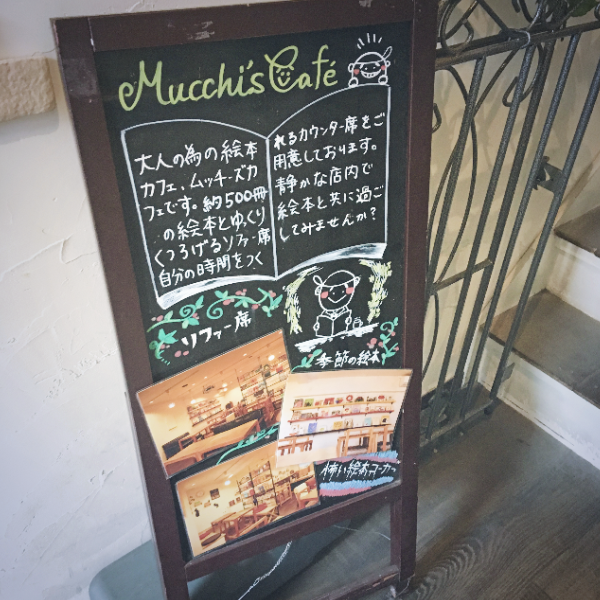 Mucchi's Café
大人の為の絵本
カフェ、ムッチーズカ
フェです。約500冊
の絵本とゆっくり
くつろげるソファー席
自分の時間をつく
れるカウンター席をご
用意しております。
静かな店内で
絵本と共に過ご
してみませんか?
ソファー席
季節の絵本
怖い絵本コーナー